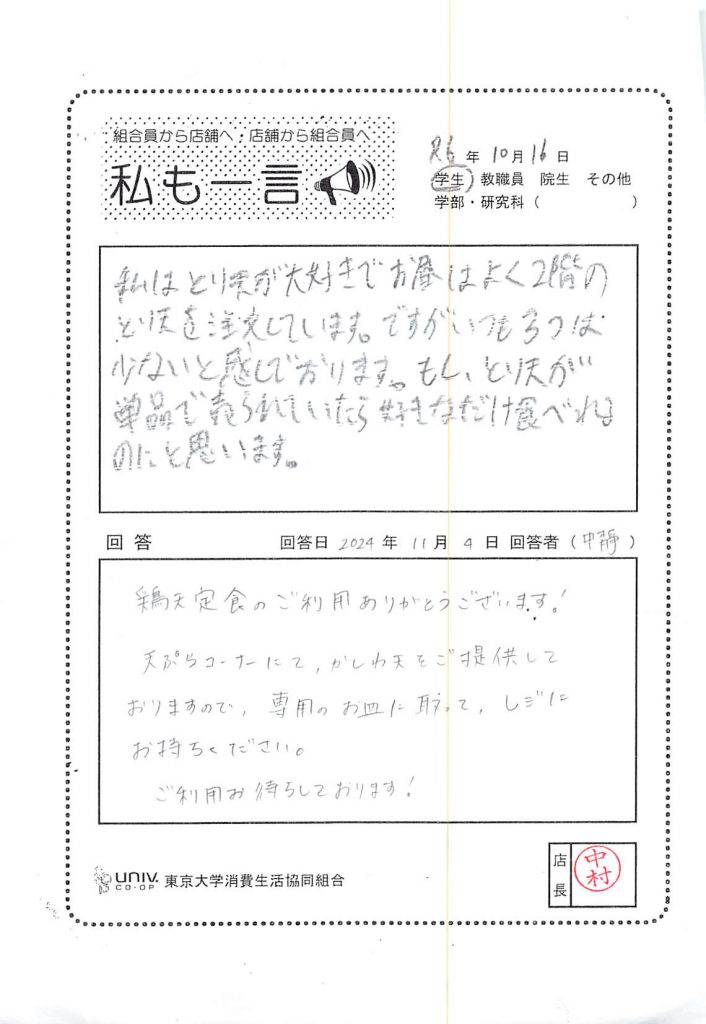 組合員から店舗へ・店舗から組合員へ
私も一言
R6年10月16日
学生 教職員 院生 その他
学部・研究科（ ）
私はとり天が大好きでお昼はよく2階の
とり天を注文しています。ですがいつも3つは
少ないと感じております。もし、とり天が
単品で売られていたら好きなだけ食べれる
のにと思います。
回答 回答日 2024年11月4日 回答者（中静）
鶏天定食のご利用ありがとうございます！
天ぷらコーナーにて、かしわ天をご提供して
おりますので、専用のお皿に取って、レジに
お持ちください。
ご利用お待ちしております！
店長 中村
UNIV. CO-OP 東京大学消費生活協同組合